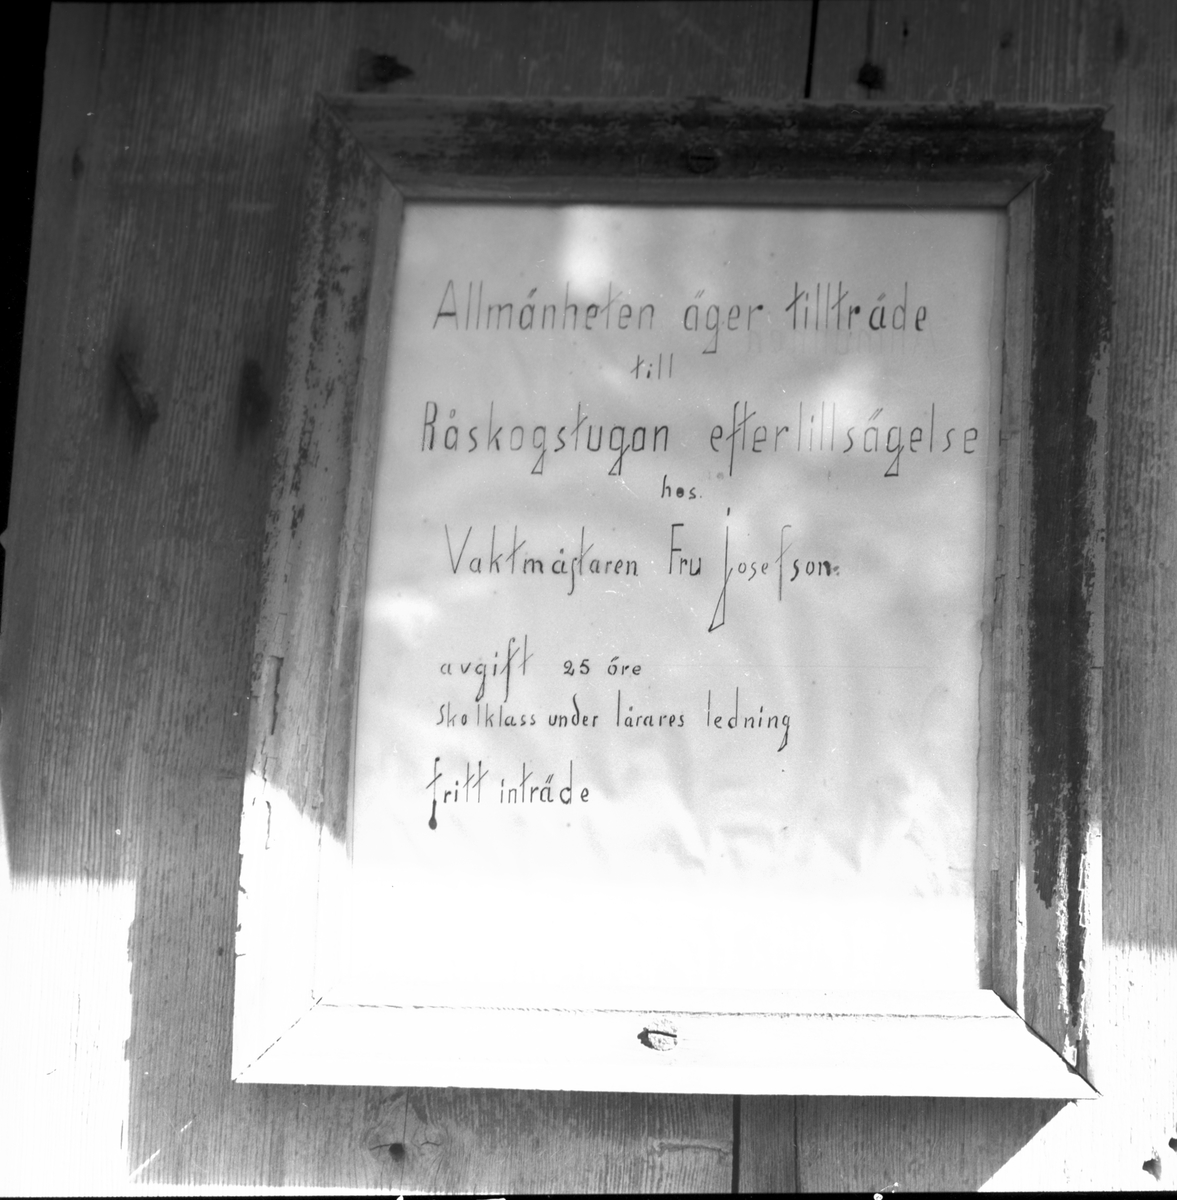 Allmänheten äger tillträde
till
Råskogstugan eftertillsägelse
hos.
Vaktmästaren Fru Josefson.
avgift 25 öre
Skolklass under lärares ledning
fritt inträde